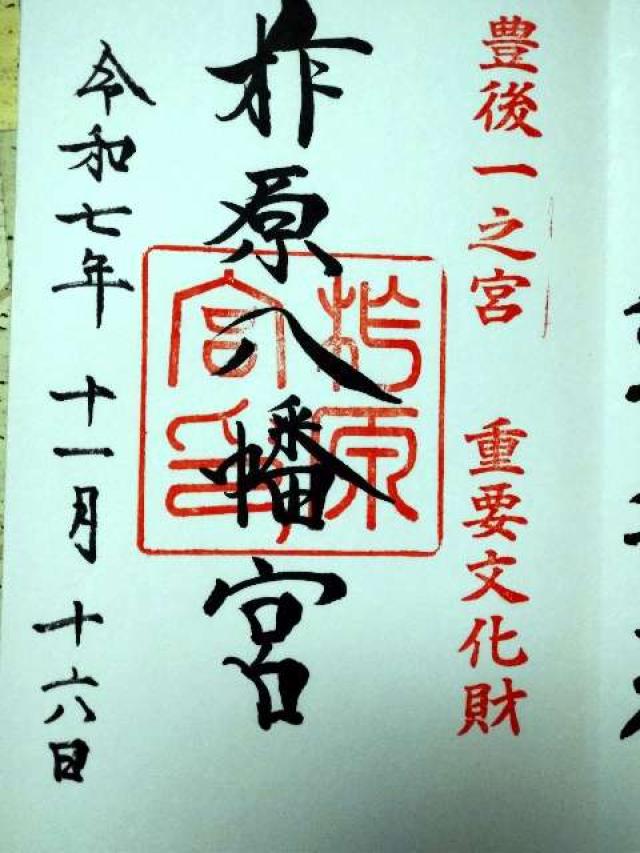 豊後一之宮 重要文化財
柞原八幡宮
柞原
宮印
令和七年 十一月 十六日